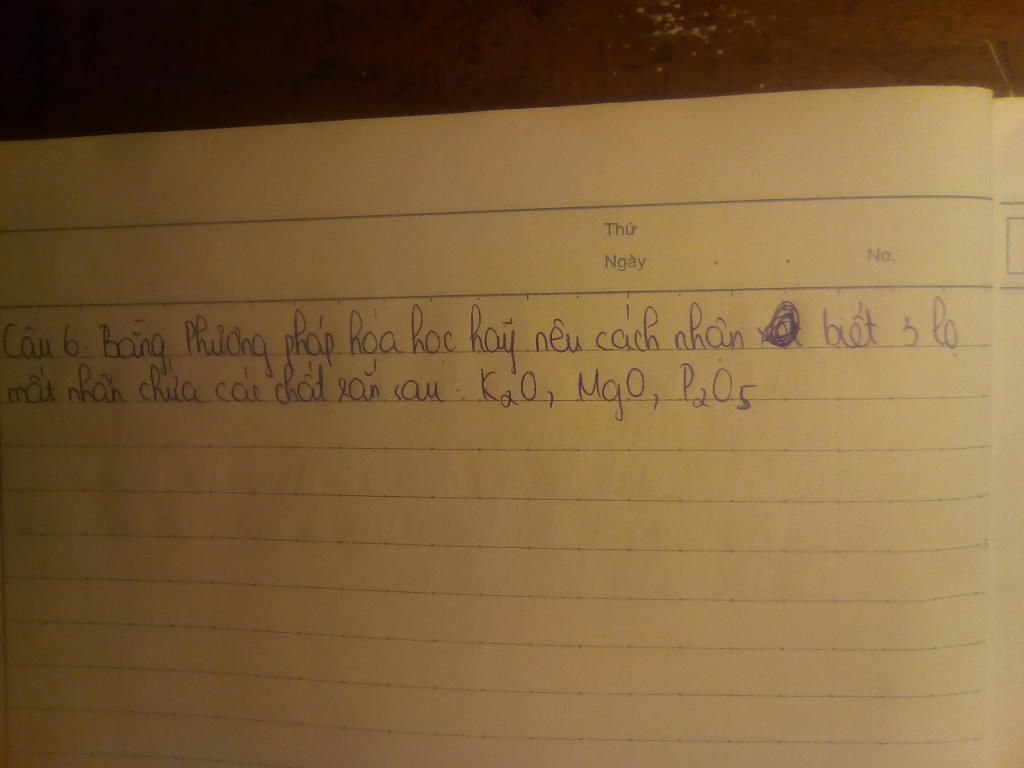 Thứ
Ngày . . No.
Câu 6. Bằng Phương pháp hóa học hãy nêu cách nhận biết 3 lọ
mất nhãn chứa các chất rắn sau: K₂O, MgO, P₂O₅